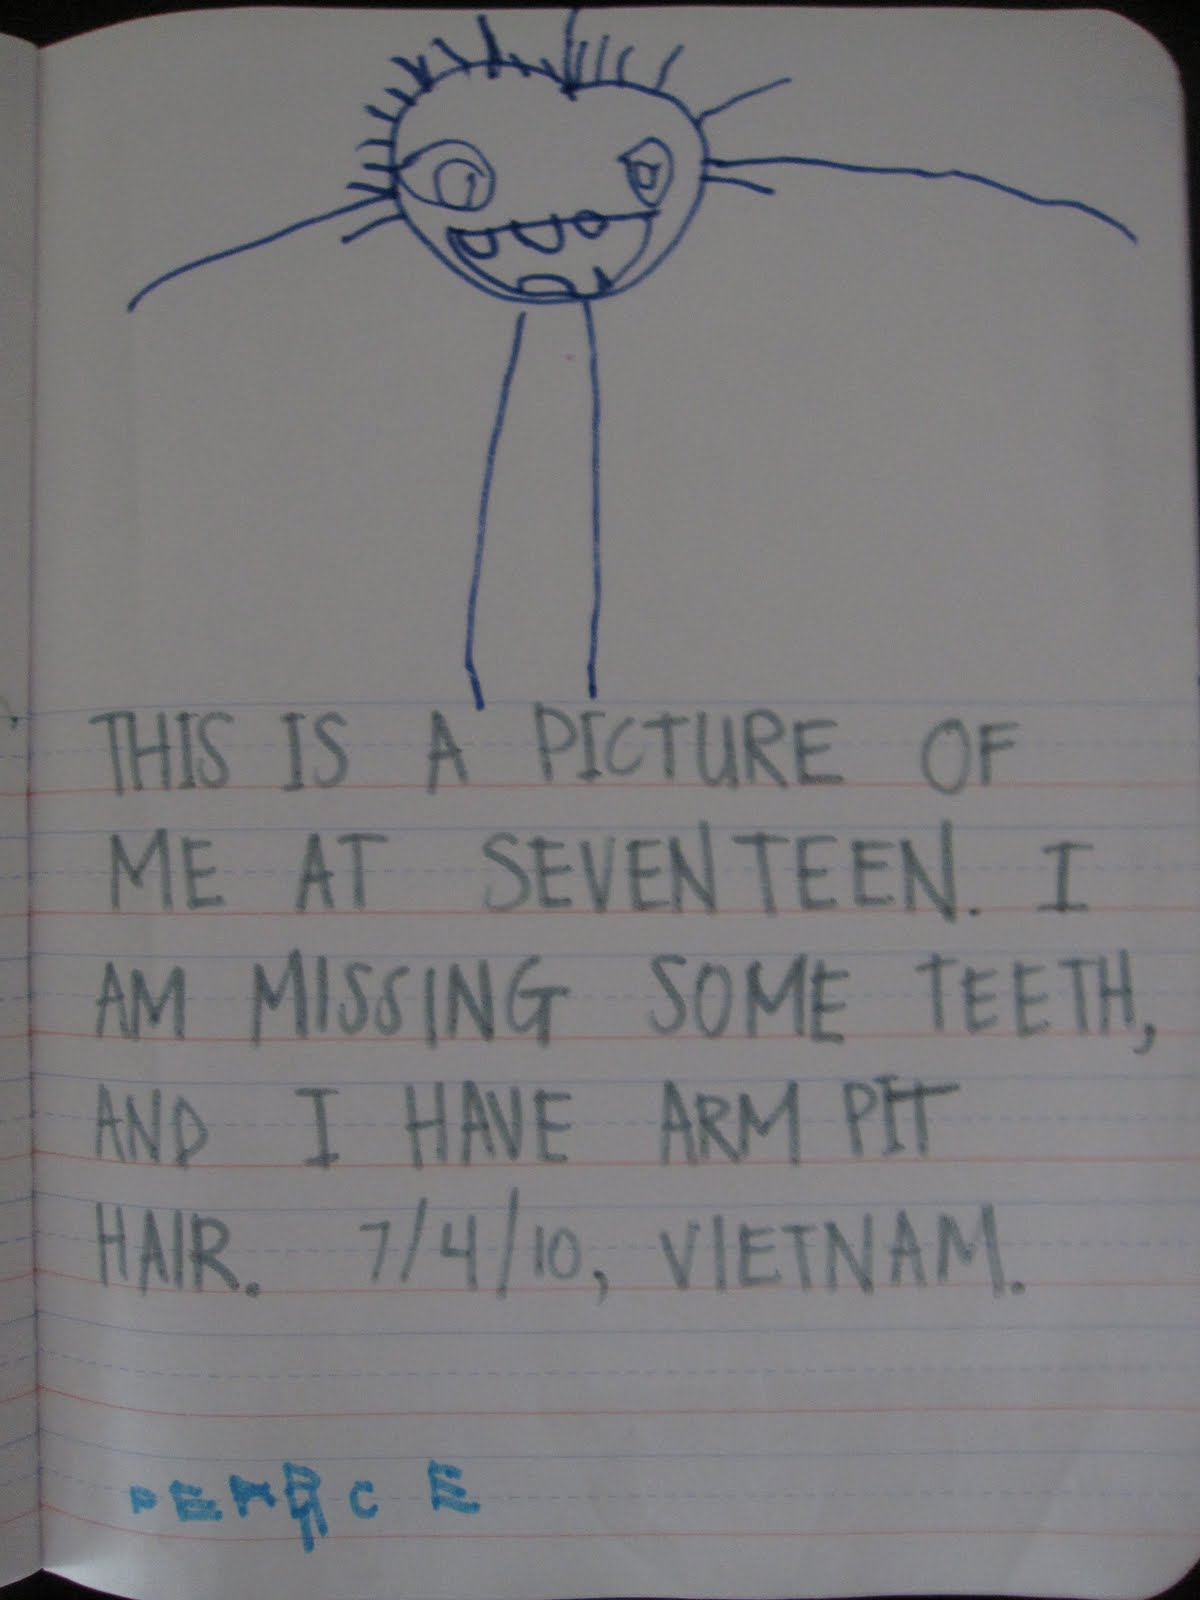 THIS IS A PICTURE OF
ME AT SEVENTEEN. I
AM MISSING SOME TEETH,
AND I HAVE ARM PIT
HAIR. 7/4/10, VIETNAM.
PEARCE